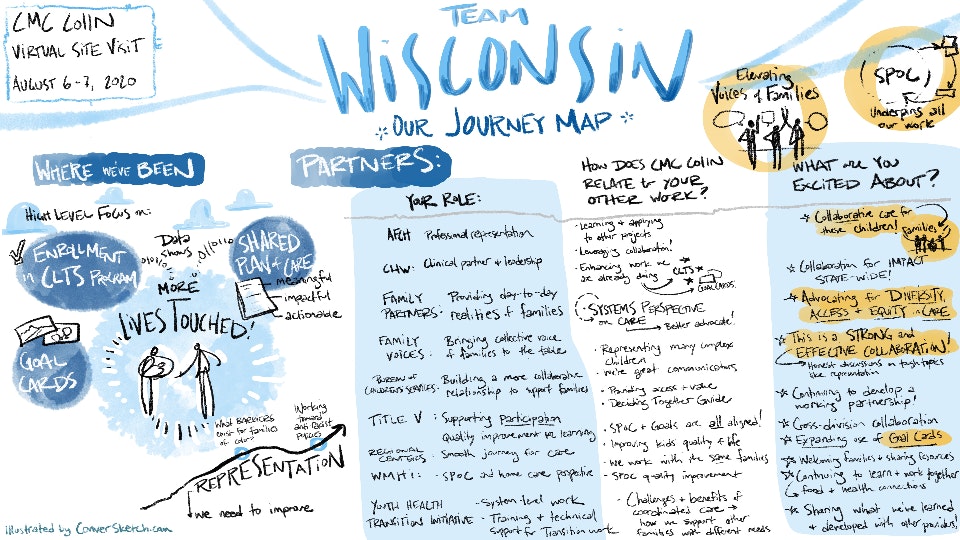 CMC CoIIN
VIRTUAL SITE VISIT
AUGUST 6-7, 2020
TEAM
WISCONSIN
OUR JOURNEY MAP
Elevating
Voices of Families
SPOC
Underpins all
our work
WHERE WE'VE BEEN
HIGH LEVEL FOCUS ON:
ENROLLMENT
in CLTS PROGRAM
Data
shows
MORE
LIVES TOUCHED!
SHARED
PLAN of CARE
meaningful
impactful
actionable
GOAL
CARDS
What BARRIERS
exist for families
of color?
Working
toward
anti racist
POLICIES
REPRESENTATION
we need to improve
illustrated by ConverSketch.com
PARTNERS:
YOUR ROLE:
AFCH Professional representation
CHW: Clinical partner & leadership
FAMILY
PARTNERS: Providing day-to-day
realities of families
FAMILY
VOICES: Bringing collective voice
of families to the table
BUREAU OF
CHILDREN'S SERVICES: Building a more collaborative
relationship to support families
TITLE V: Supporting Participation
Quality improvement we learning
REGIONAL
CENTERS: Smooth journey for care
WMHI: SPOC and home care perspective
YOUTH HEALTH
TRANSITION INITIATIVE: - System level work
- Training & technical
support for Transition work
HOW DOES CMC CoIIN
RELATE to YOUR
OTHER WORK?
• Learning & applying
to other projects
• Leveraging collaboration!
• Enhancing work we
are already doing
CLTS
GOAL CARDS
• SYSTEMS PERSPECTIVE
on CARE
Better advocate!
• Representing many complex
children
• We're great communicators
• Providing access + value
• Deciding Together Guide
• SPOC & Goals are all aligned!
• Improving kids quality of life
• We work with the same families
• SPOC quality improvement
• Challenges & benefits of
coordinated care →
how we support other
families with different needs
WHAT are YOU
EXCITED ABOUT?
Collaborative care for
these children!
Families
Collaboration for IMPACT
STATE-WIDE!
Advocating for DIVERSITY,
ACCESS & EQUITY in CARE
This is a STRONG and
EFFECTIVE COLLABORATION!
Honest discussions on tough topics
like representation
Continuing to develop a
working partnership!
Cross-division collaboration
Expanding use of Goal Cards
Welcoming families & sharing resources
Continuing to learn & work together
food & health connections
Sharing what we've learned
& developed with other providers!